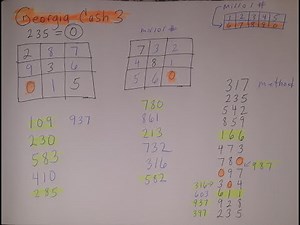 Georgia Cash 3
Mirror #
1 2 3 4 5
6 7 8 9 0
235 = 0
mirror #
2 8 7
9 3 6
0 1 5
7 3 2
4 8 1
5 6 0
109 937
230
583
410
235
780
861
213
732
316
582
317 method
235
542
859
166
473
780 987
097
304
603 611
937 928
347 235